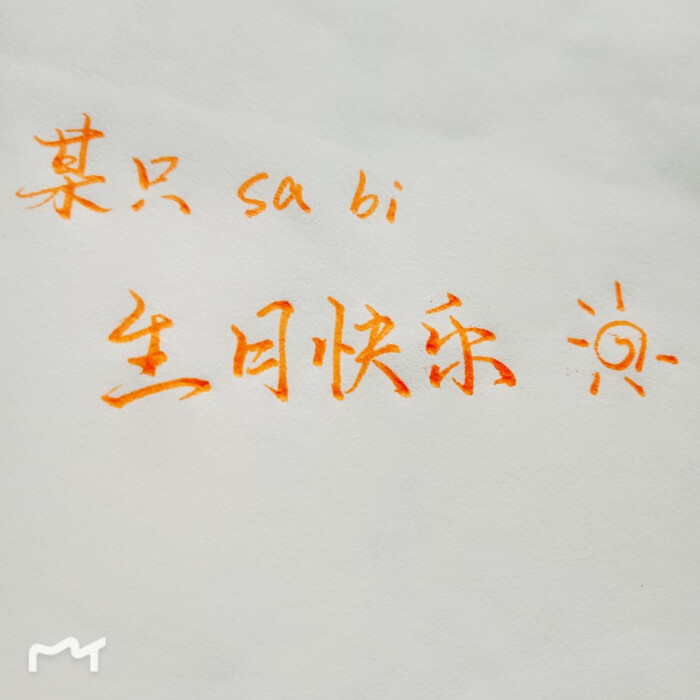 某只 sa bi
生日快乐